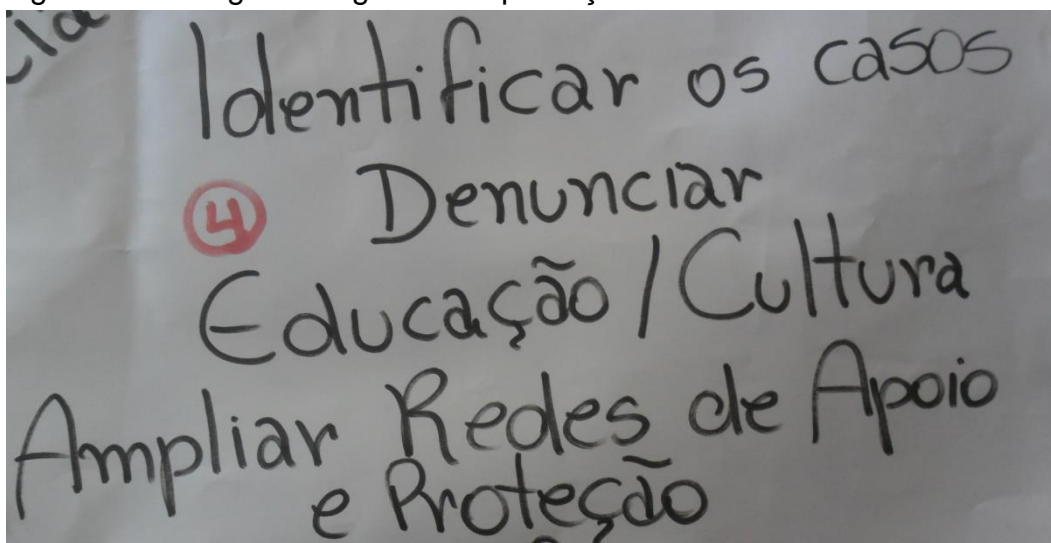 Identificar os casos
4 Denunciar
Educação / Cultura
Ampliar Redes de Apoio
e Proteção